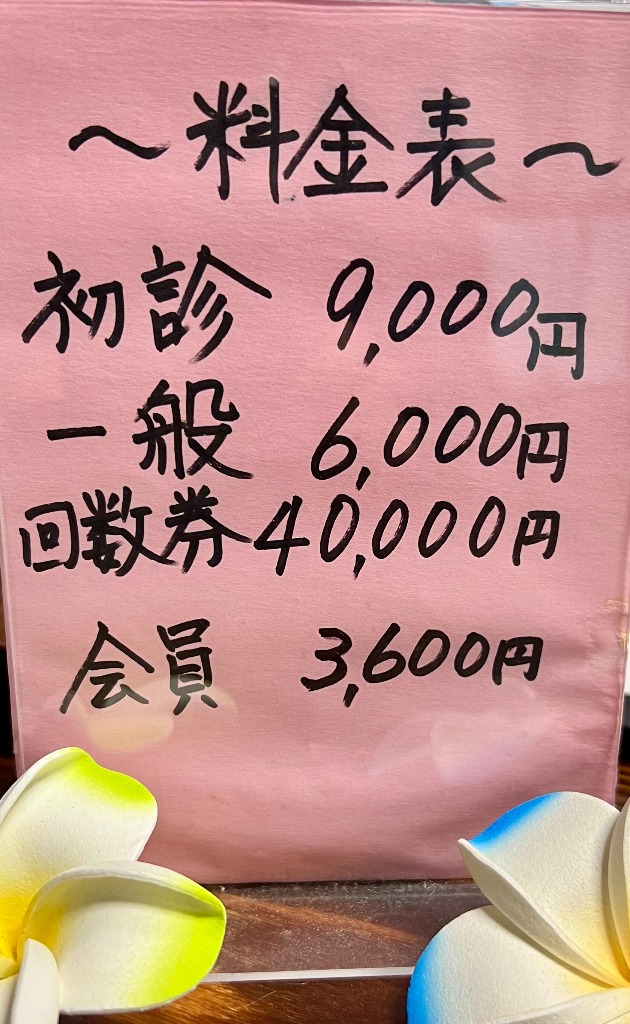 ～料金表～
初診 9,000円
一般 6,000円
回数券 40,000円
会員 3,600円